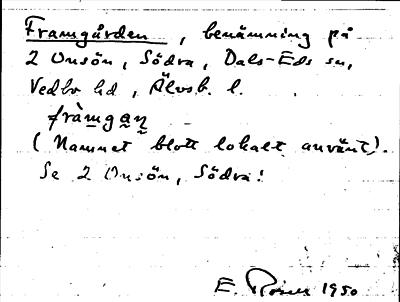 Framgården, benämning på
2 Onsön, Södra, Dals-Eds sn,
Vedbo hd, Älvsb. l.
fràmgan̥
(Namnet blott lokalt använt).
Se 2 Onsön, Södra!
E. 1950